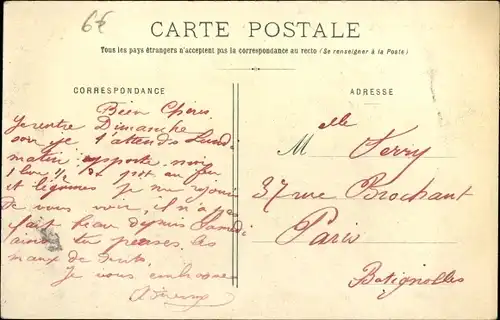 6f
CARTE POSTALE
Tous les pays étrangers n'acceptent pas la correspondance au recto (Se renseigner à la Poste)
CORRESPONDANCE
ADRESSE
Bien Chères
Je rentre Dimanche
soir je t'attends Lundi
matin apporte moi
1 livre 1/2 de pot au feu
et légumes Je me réjouis
De vous voir, il n'a pas
fait beau depuis Samedi
ainsi tu penses les
maux de dents
Je vous embrasse
Melle Ferry
37 rue Brochant
Paris
Batignolles